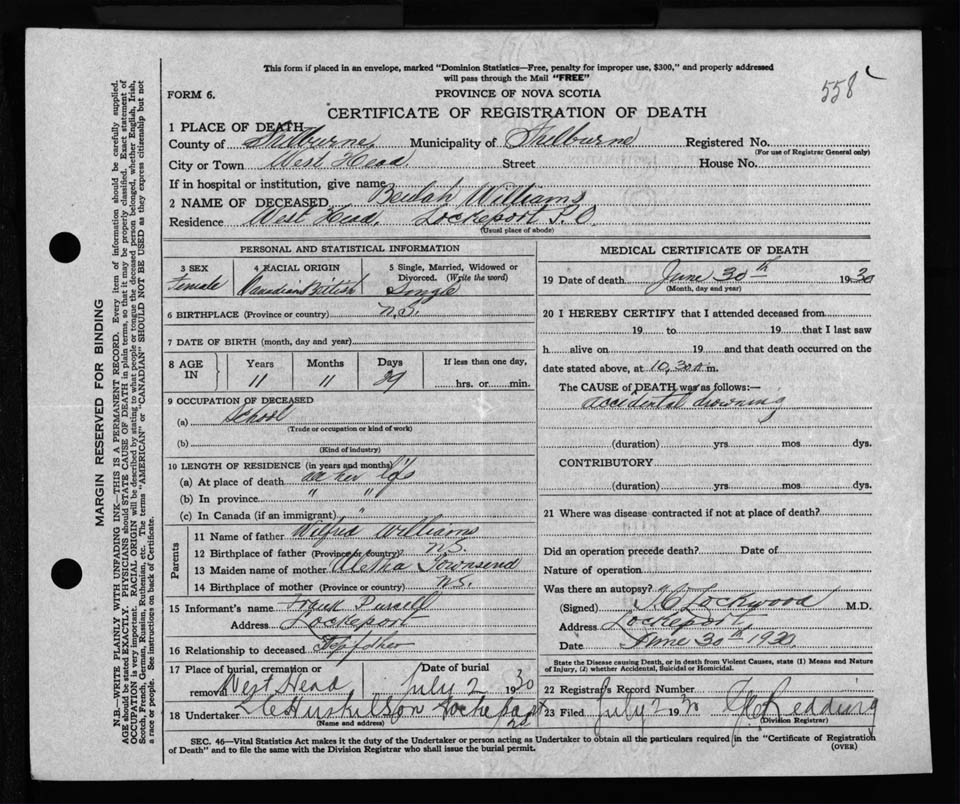 This form if placed in an envelope, marked "Dominion Statistics—Free, penalty for improper use, $300," and properly addressed
will pass through the Mail "FREE"
558
FORM 6.
PROVINCE OF NOVA SCOTIA
CERTIFICATE OF REGISTRATION OF DEATH
1 PLACE OF DEATH—
County of Shelburne Municipality of Shelburne Registered No.
(For use of Registrar General only)
City or Town West Head Street House No.
If in hospital or institution, give name
2 NAME OF DECEASED Beulah Williams
Residence West Head, Lockeport P.O
(Usual place of abode)
PERSONAL AND STATISTICAL INFORMATION
3 SEX Female
4 RACIAL ORIGIN Canadian British
5 Single, Married, Widowed or Divorced. (Write the word) Single
6 BIRTHPLACE (Province or country) N.S.
7 DATE OF BIRTH (month, day and year)
8 AGE IN Years 11 Months 11 Days 29 If less than one day, hrs. or min.
9 OCCUPATION OF DECEASED
(a) School
(Trade or occupation or kind of work)
(b)
(Kind of industry)
10 LENGTH OF RESIDENCE (in years and months)
(a) At place of death all her life
(b) In province " "
(c) In Canada (if an immigrant) "
Parents
11 Name of father Wilfred Williams
12 Birthplace of father (Province or country) N.S.
13 Maiden name of mother Townsend
14 Birthplace of mother (Province or country) N.S.
15 Informant's name Frank Purcell
Address Lockeport
16 Relationship to deceased Stepfather
17 Place of burial, cremation or removal West Head Date of burial July 2 1930
18 Undertaker Lockeport NS
(Name and address)
MEDICAL CERTIFICATE OF DEATH
19 Date of death June 30th 1930
(Month, day and year)
20 I HEREBY CERTIFY that I attended deceased from
19 to 19 that I last saw
h alive on 19 and that death occurred on the
date stated above, at 10.30 m.
The CAUSE of DEATH was as follows:—
accidental drowning
(duration) yrs. mos. dys.
CONTRIBUTORY
(duration) yrs. mos. dys.
21 Where was disease contracted if not at place of death?
Did an operation precede death? Date of
Nature of operation
Was there an autopsy?
(Signed) Lockwood M.D.
Address Lockeport
Date June 30th 1930
State the Disease causing Death, or in death from Violent Causes, state (1) Means and Nature
of Injury, (2) whether Accidental, Suicidal or Homicidal.
22 Registrar's Record Number
23 Filed July 2 1930 Redding
(Division Registrar)
SEC. 46—Vital Statistics Act makes it the duty of the Undertaker or person acting as Undertaker to obtain all the particulars required in the "Certificate of Registration
of Death" and to file the same with the Division Registrar who shall issue the burial permit.
(OVER)
MARGIN RESERVED FOR BINDING
N.B.—WRITE PLAINLY WITH UNFADING INK—THIS IS A PERMANENT RECORD. Every item of information should be carefully supplied.
AGE should be stated EXACTLY. PHYSICIANS should STATE CAUSE OF DEATH in plain terms, so that it may be properly classified. Exact statement of
OCCUPATION is very important. RACIAL ORIGIN will be described by stating to what people or tongue the deceased person belonged, whether English, Irish,
Scotch, French, German, Russian, Ruthenian, etc. The terms "AMERICAN" or "CANADIAN" SHOULD NOT BE USED as they express citizenship but not
a race or people. See instructions on back of Certificate.